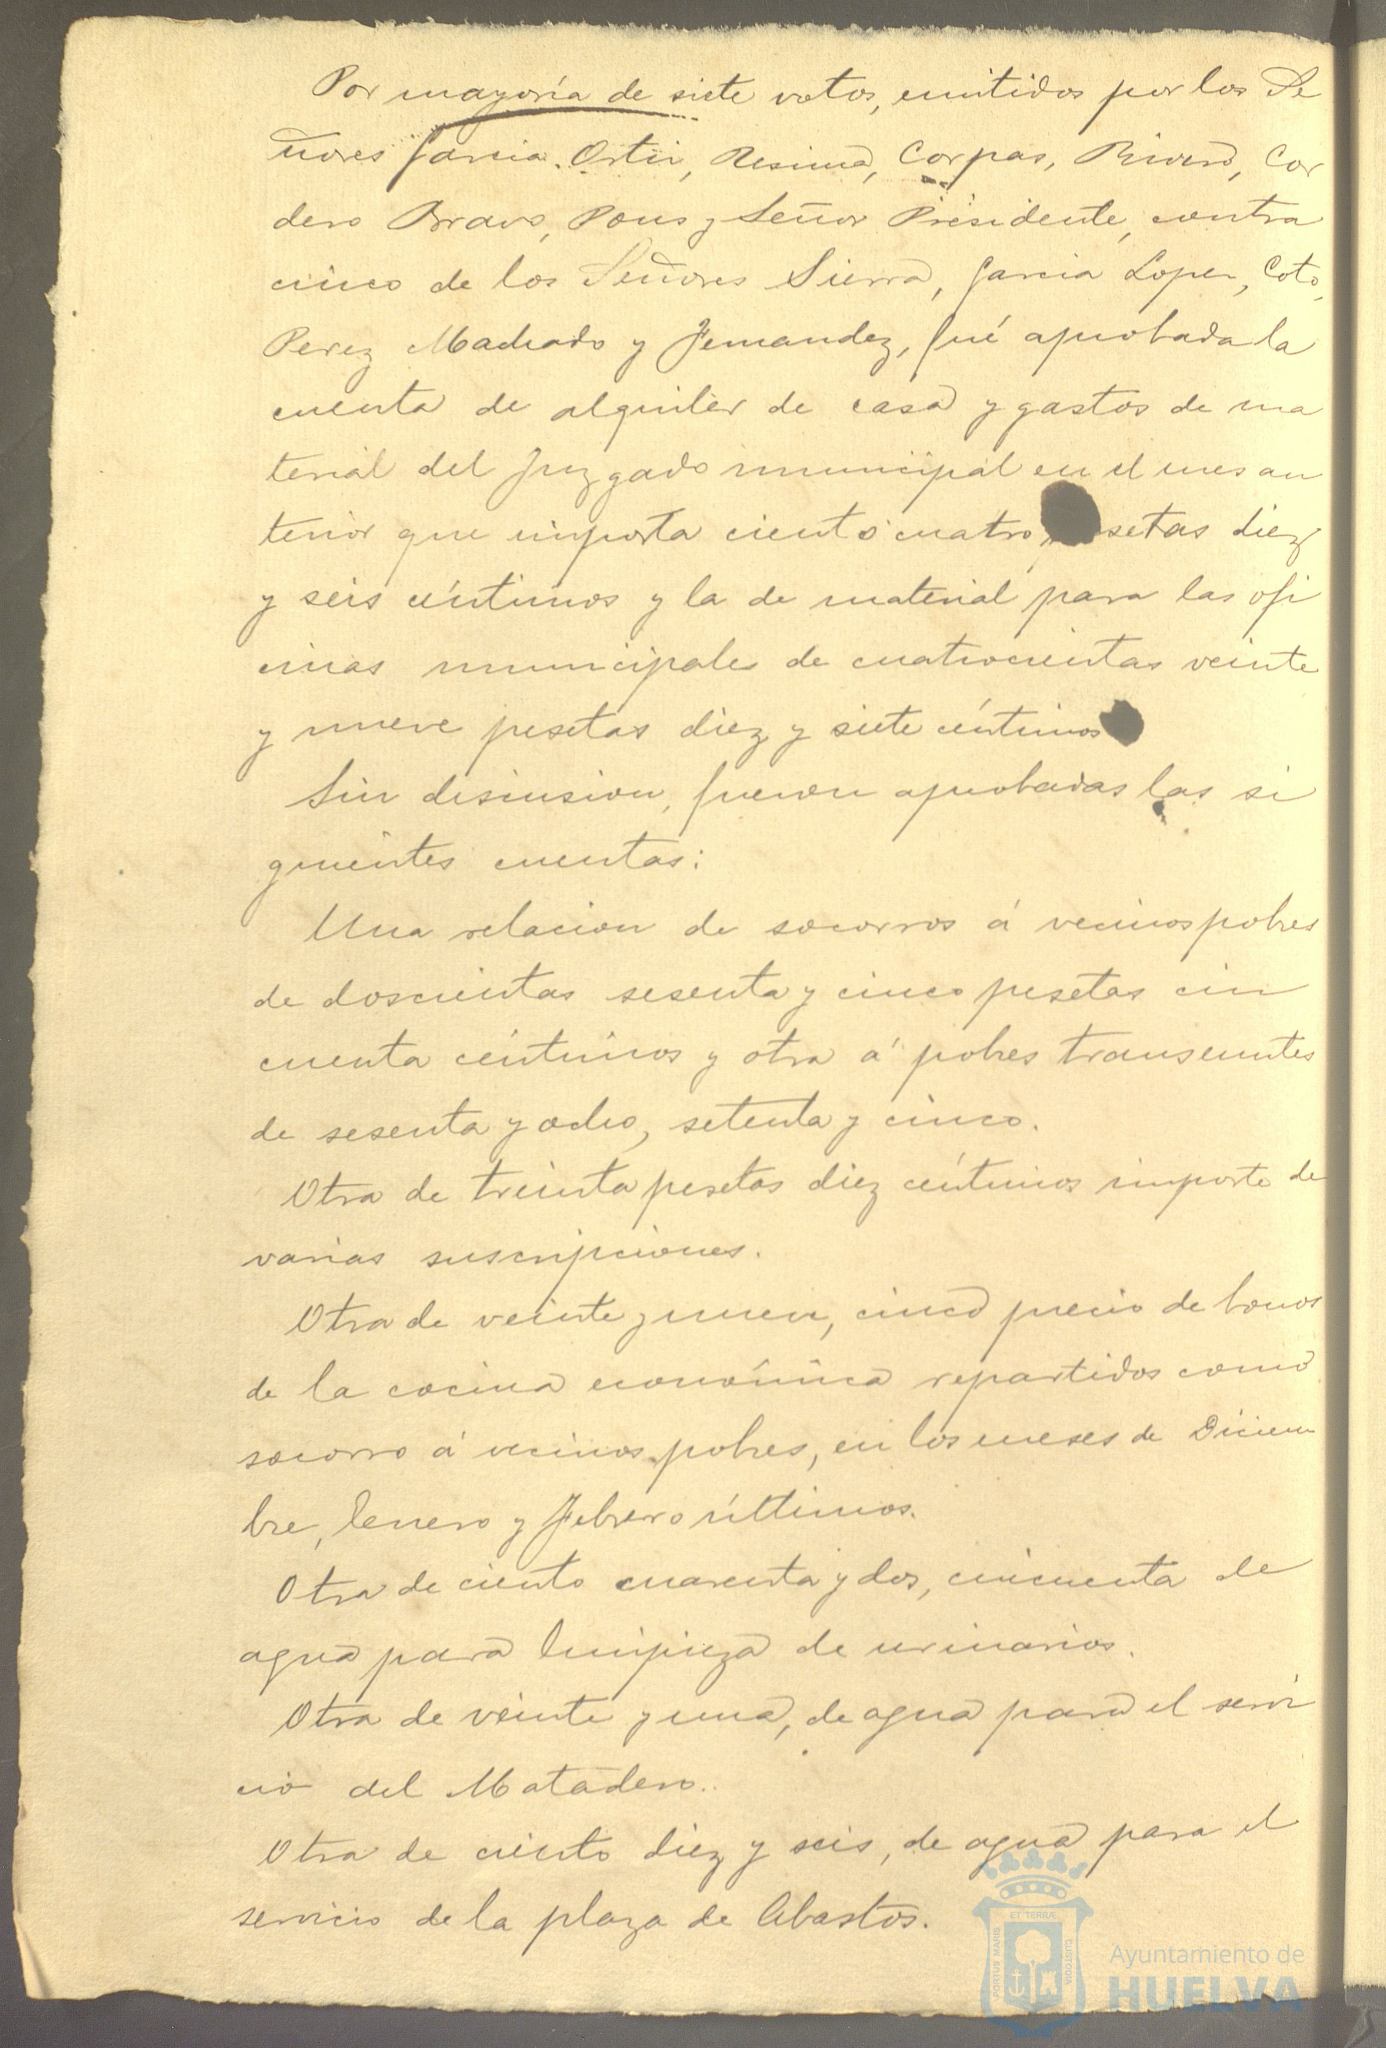 Por mayoría de siete votos, emitidos por los Se
ñores Garcia Ortiz, Resima, Corpas, Rivero, Cor
dero Bravo, Pons y Señor Presidente, contra
cinco de los Señores Sierra, Garcia Lopez, Coto,
Perez Machado y Fernandez, fué aprobada la
cuenta de alquiler de casa y gastos de ma
terial del Juzgado municipal en el mes an
terior que importa ciento cuatro setas diez
y seis céntimos y la de material para las ofi
cinas municipales de cuatrocientas veinte
y nueve pesetas diez y siete céntimos
Sin discusion, fueron aprobadas las si
guientes cuentas:
Una relacion de socorros á vecinos pobres
de doscientas sesenta y cinco pesetas cin
cuenta céntimos y otra á pobres transeuntes
de sesenta y ocho, setenta y cinco.
Otra de treinta pesetas diez céntimos importe de
varias suscripciones.
Otra de veinte y nueve, cinco precio de bonos
de la cocina económica repartidos como
socorro á vecinos pobres, en los meses de Diciem
bre, Enero y Febrero últimos.
Otra de ciento cuarenta y dos, cincuenta de
agua para limpieza de urinarios.
Otra de veinte y una, de agua para el servi
cio del Matadero.
Otra de ciento diez y seis, de agua para el
servicio de la plaza de Abastos.
PORTUS MARIS
ET TERRÆ
CUSTODIA
Ayuntamiento de
HUELVA